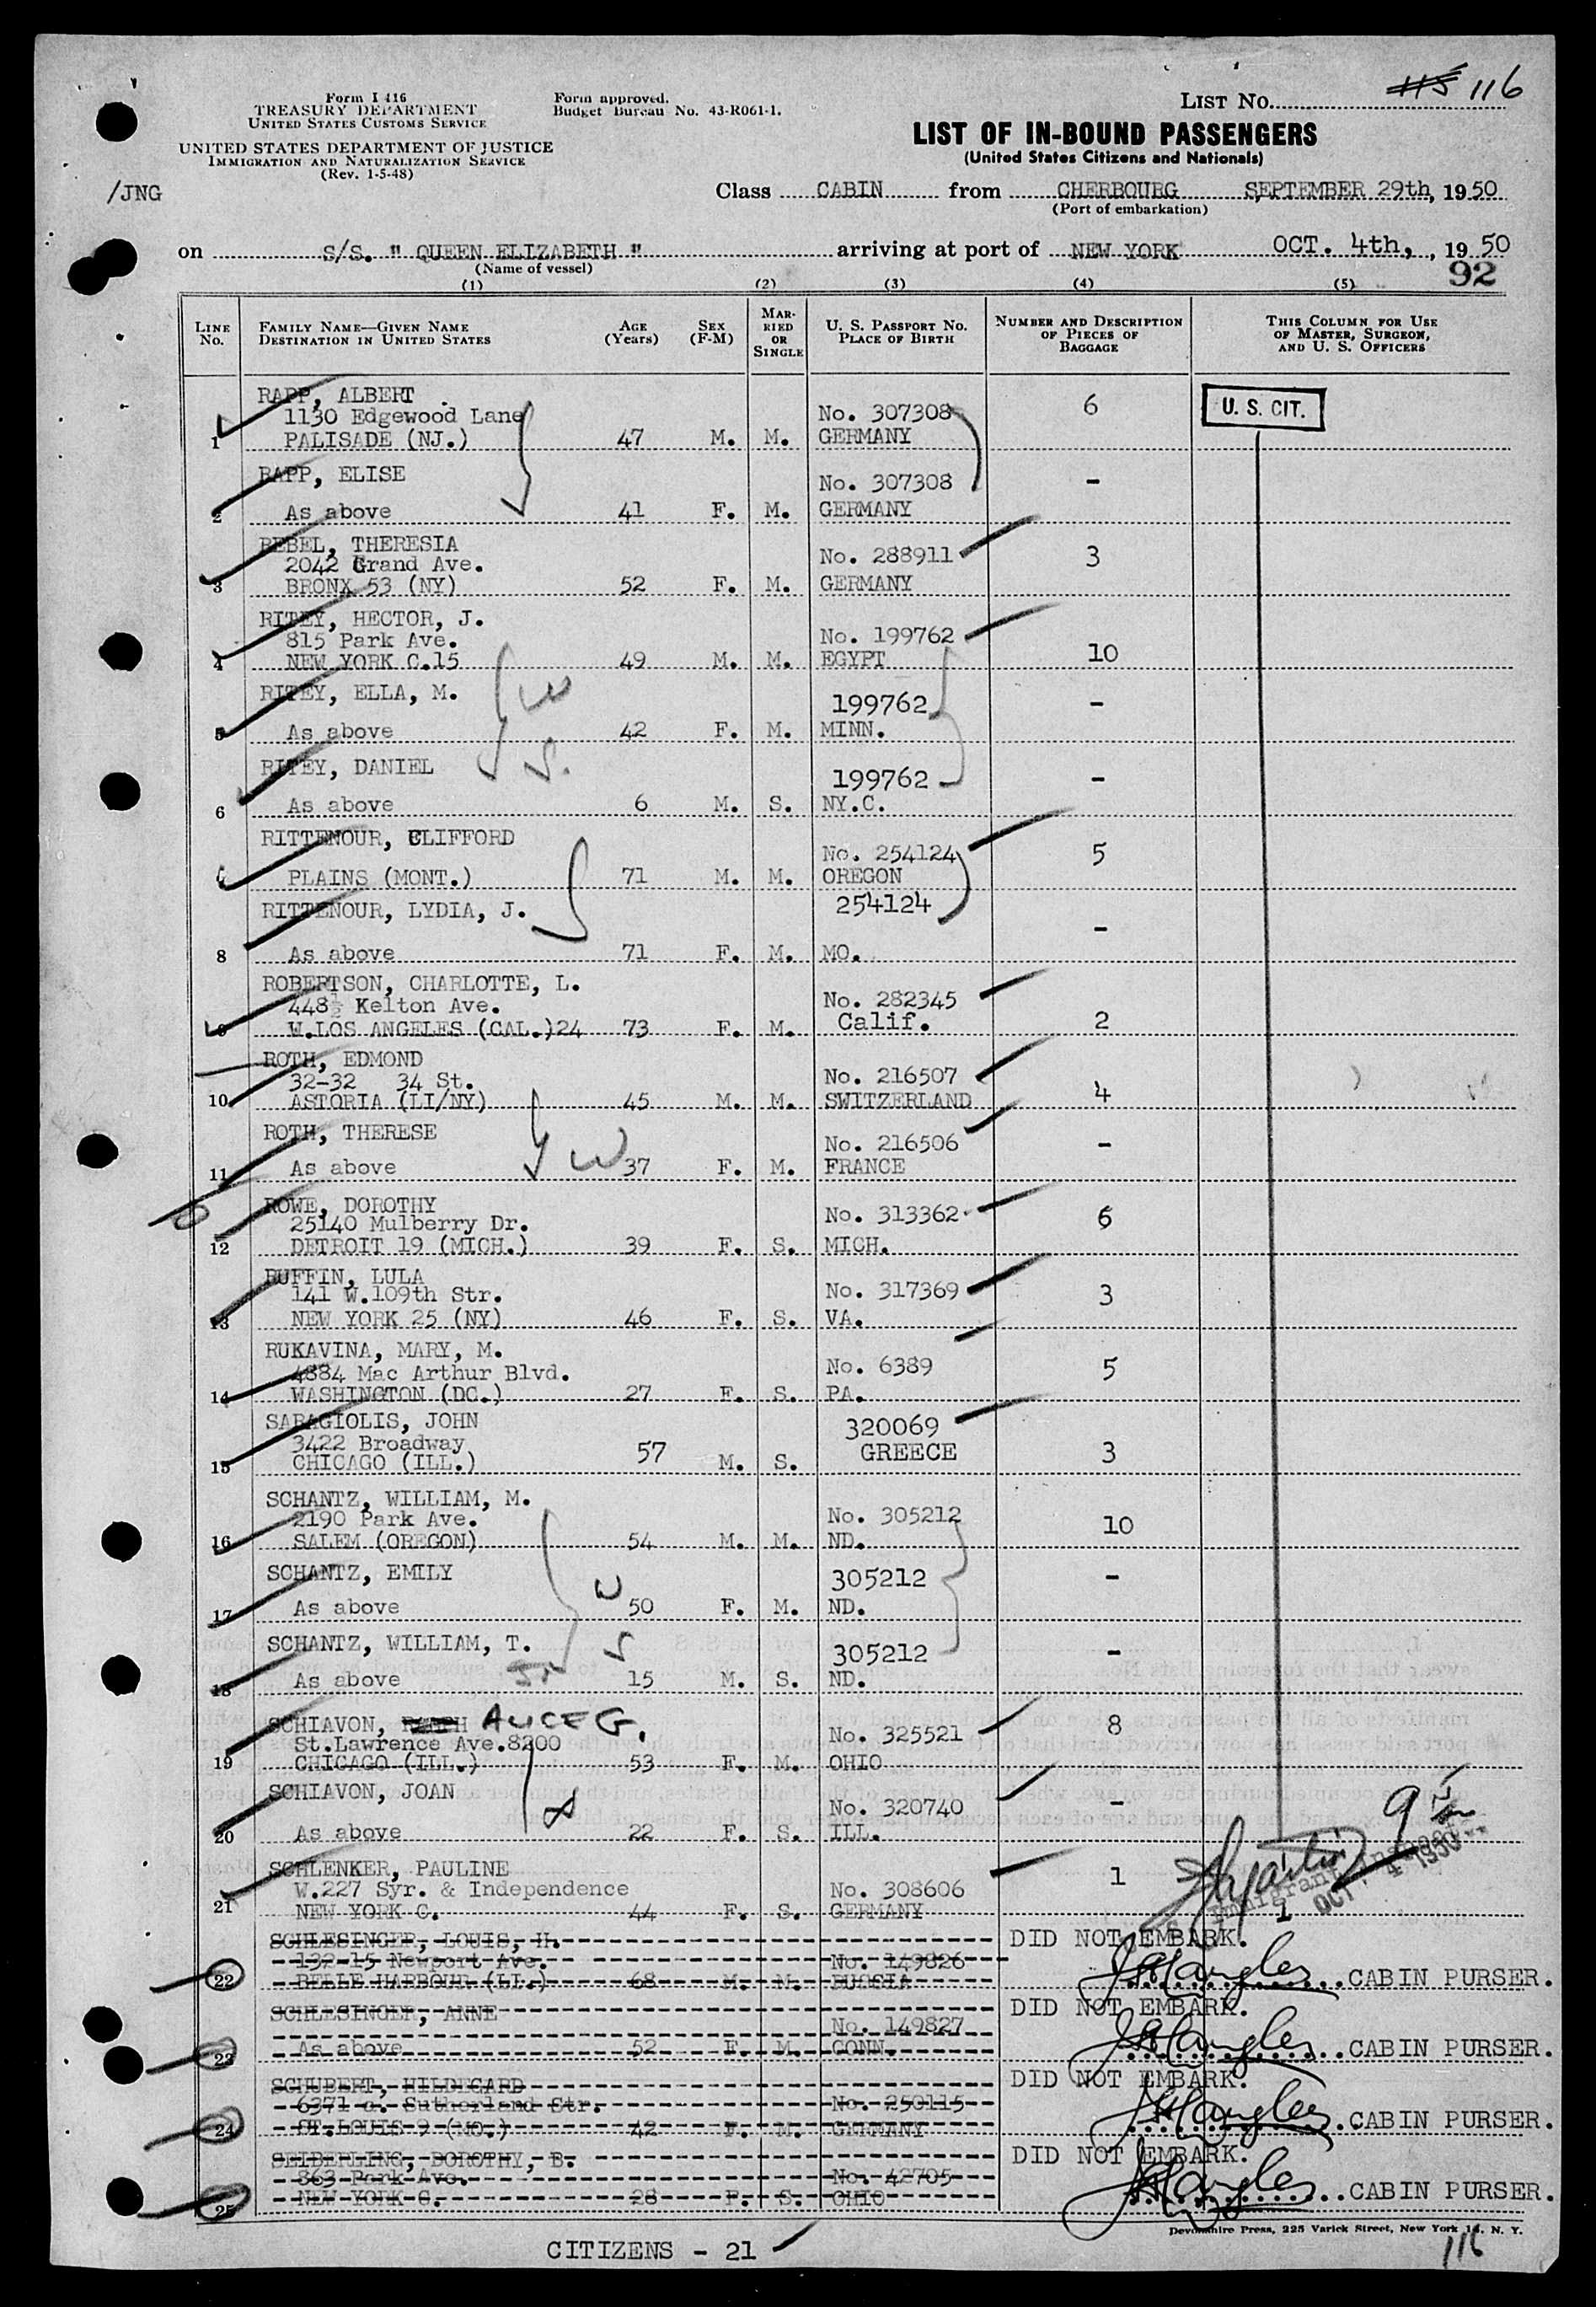 Form I 416
TREASURY DEPARTMENT
UNITED STATES CUSTOMS SERVICE
UNITED STATES DEPARTMENT OF JUSTICE
IMMIGRATION AND NATURALIZATION SERVICE
(Rev. 1-5-48)
Form approved.
Budget Bureau No. 43-R061-1.
LIST NO. 115 116
LIST OF IN-BOUND PASSENGERS
(United States Citizens and Nationals)
/JNG
Class CABIN from CHERBOURG SEPTEMBER 29th, 1950
(Port of embarkation)
on S/S. " QUEEN ELIZABETH " arriving at port of NEW YORK OCT. 4th, , 1950
(Name of vessel)
92
(1) (2) (3) (4) (5)
LINE No. FAMILY NAME—GIVEN NAME DESTINATION IN UNITED STATES AGE (Years) SEX (F-M) MARRIED OR SINGLE U. S. PASSPORT NO. PLACE OF BIRTH NUMBER AND DESCRIPTION OF PIECES OF BAGGAGE THIS COLUMN FOR USE OF MASTER, SURGEON, AND U. S. OFFICERS
RAPP, ALBERT
1130 Edgewood Lane No. 307308 6 U. S. CIT.
1 PALISADE (NJ.) 47 M. M. GERMANY
RAPP, ELISE No. 307308 -
2 As above 41 F. M. GERMANY
REBEL, THERESIA
2042 Grand Ave. No. 288911 3
3 BRONX 53 (NY) 52 F. M. GERMANY
RITEY, HECTOR, J.
815 Park Ave. No. 199762
4 NEW YORK C.15 49 M. M. EGYPT 10
RITEY, ELLA, M. W 199762 -
5 As above 42 F. M. MINN.
RITEY, DANIEL S. 199762 -
6 As above 6 M. S. NY.C.
RITTENOUR, CLIFFORD No. 254124 5
PLAINS (MONT.) 71 M. M. OREGON
RITTENOUR, LYDIA, J. 254124 -
8 As above 71 F. M. MO.
ROBERTSON, CHARLOTTE, L.
448½ Kelton Ave. No. 282345
9 W.LOS ANGELES (CAL.)24 73 F. M. Calif. 2
ROTH, EDMOND
32-32 34 St. No. 216507
10 ASTORIA (LI/NY) 45 M. M. SWITZERLAND 4
ROTH, THERESE No. 216506 -
11 As above W 37 F. M. FRANCE
ROWE, DOROTHY
25140 Mulberry Dr. No. 313362 6
12 DETROIT 19 (MICH.) 39 F. S. MICH.
RUFFIN, LULA
141 W.109th Str. No. 317369 3
13 NEW YORK 25 (NY) 46 F. S. VA.
RUKAVINA, MARY, M.
4884 Mac Arthur Blvd. No. 6389 5
14 WASHINGTON (DC.) 27 F. S. PA.
SARAGIOLIS, JOHN 320069
3422 Broadway GREECE 3
15 CHICAGO (ILL.) 57 M. S.
SCHANTZ, WILLIAM, M.
2190 Park Ave. No. 305212 10
16 SALEM (OREGON) 54 M. M. ND.
SCHANTZ, EMILY W 305212 -
17 As above 50 F. M. ND.
SCHANTZ, WILLIAM, T. S 305212 -
18 As above 15 M. S. ND.
SCHIAVON, ALICE G.
St.Lawrence Ave.8200 No. 325521 8
19 CHICAGO (ILL.) 53 F. M. OHIO
SCHIAVON, JOAN No. 320740 -
20 As above 22 F. S. ILL.
SCHLENKER, PAULINE
W.227 Syr. & Independence No. 308606 1
21 NEW YORK C. 44 F. S. GERMANY
Immigrant Inspector
OCT 4 1950
SCHLESINGER, LOUIS, H. DID NOT EMBARK.
132-15 Newport Ave. No. 149826
22 BELLE HARBOUR (LI.) 68 M. M. RUSSIA CABIN PURSER.
SCHLESINGER, ANNE DID NOT EMBARK.
No. 149827
23 As above 52 F. M. CONN. CABIN PURSER.
SCHUBERT, HILDEGARD DID NOT EMBARK.
6371 a. Sutherland Str. No. 250115
24 ST.LOUIS 9 (MO.) 42 F. M. GERMANY CABIN PURSER.
SEIBERLING, DOROTHY, B. DID NOT EMBARK.
863 Park Ave. No. 42705
25 NEW YORK C. 28 F. S. OHIO CABIN PURSER.
Devonshire Press, 225 Varick Street, New York 14, N. Y.
CITIZENS - 21
116